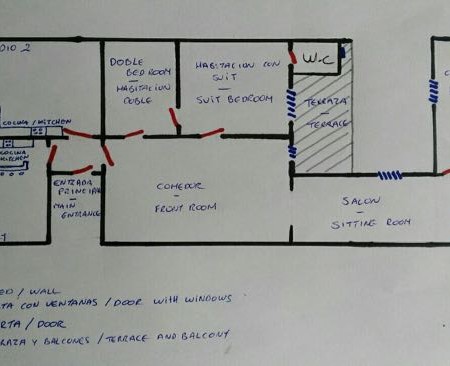 DIO 2
DOBLE
BEDROOM
HABITACION
DOBLE
HABITACION CON
SUIT
SUIT BEDROOM
W.C
TERRAZA
TERRACE
COCINA / KITCHEN
COCINA
KITCHEN
ENTRADA
PRINCIPA
MAIN
ENTRANCE
COMEDOR
FRONT ROOM
SALON
SITTING ROOM
C
T
ED / WALL
TA CON VENTANAS / DOOR WITH WINDOWS
RTA / DOOR
RAZA Y BALCONES / TERRACE AND BALCONY